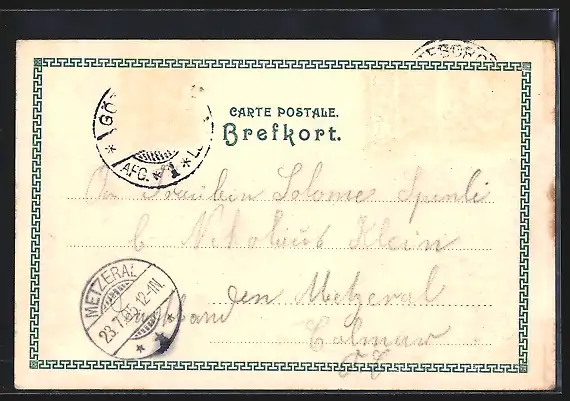 GÖ
AFG. * 1 * L
CARTE POSTALE.
Brefkort.
An Fräulein Salome Spenli
b Nikolaus Klein
in Metzeral
METZERAL
23.7.05.12-1N.
Colmar